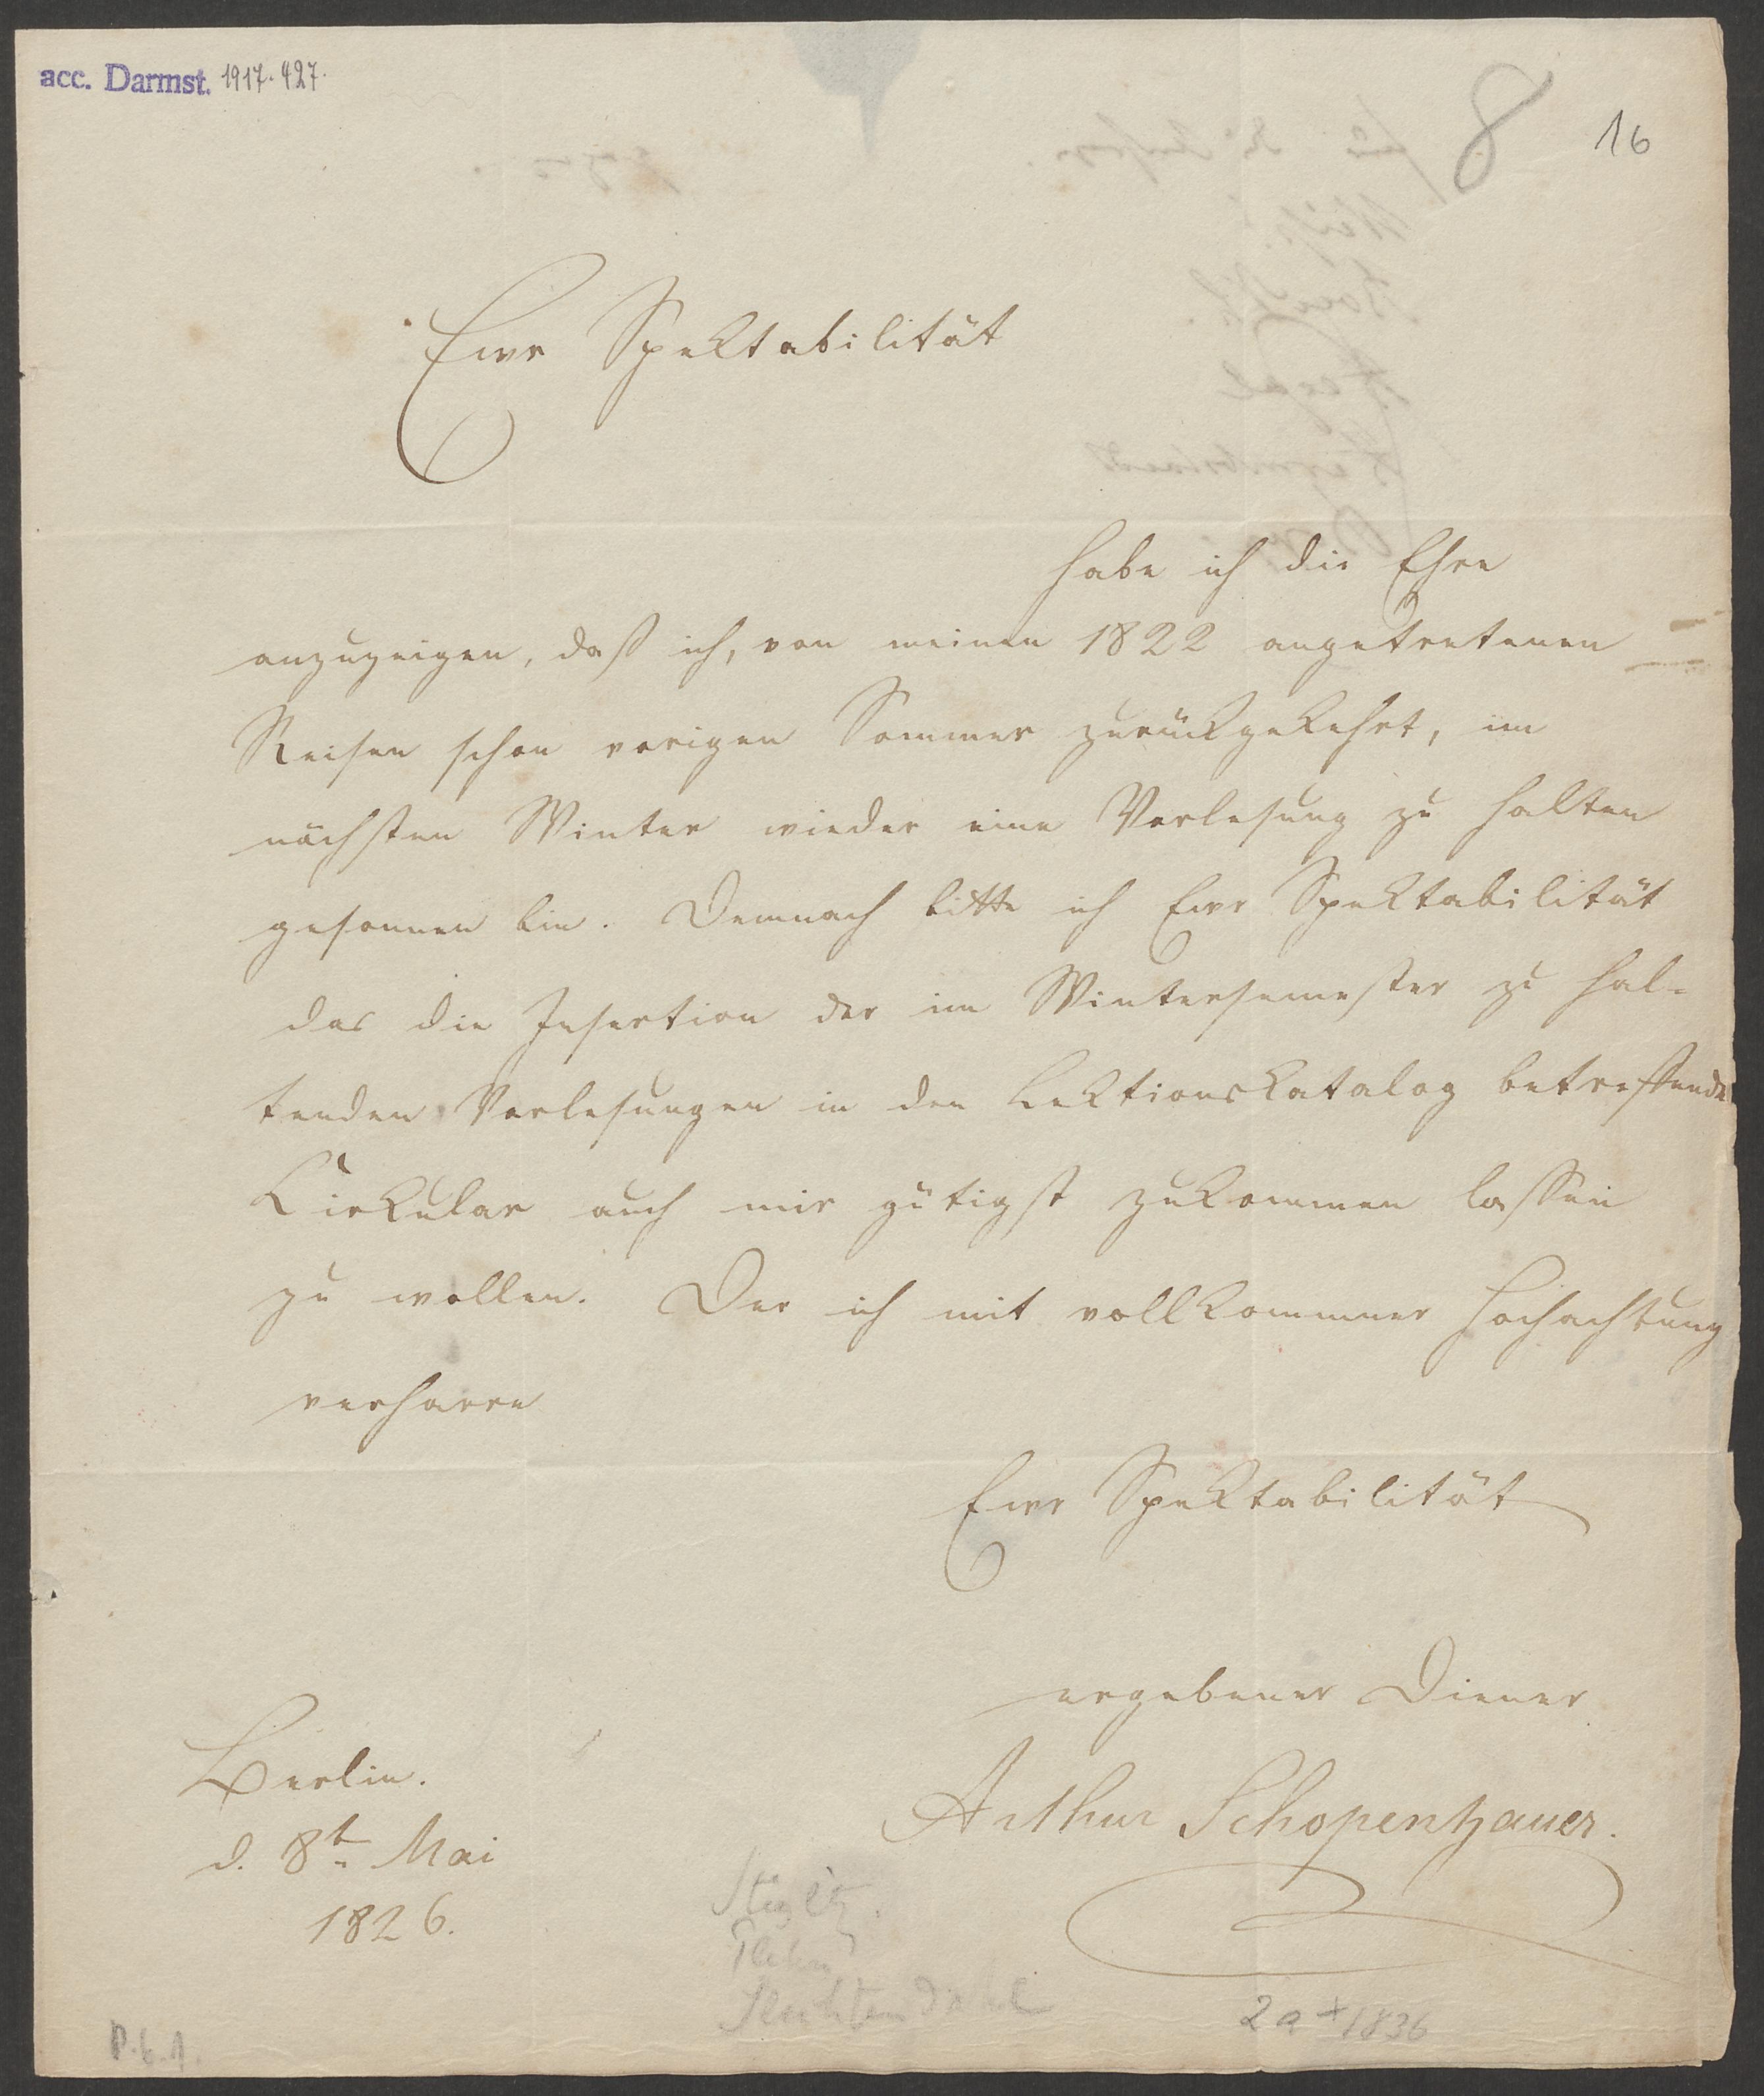 acc. Darmst. 1917. 427.
8
16
Ewr Spektabilität
habe ich die Ehre
anzuzeigen, daß ich, von meinen 1822 angetretenen
Reisen schon vorigen Sommer zurückgekehrt, im
nächsten Winter wieder eine Vorlesung zu halten
gesonnen bin. Demnach bitte ich Ewr Spektabilität
das die Insertion der im Wintersemester zu hal-
tenden Vorlesungen in den Lektionskatalog betreffende
Cirkular auch mir gütigst zukommen lassen
zu wollen. Der ich mit vollkommner Hochachtung
verharre
Ewr Spektabilität
ergebener Diener
Arthur Schopenhauer.
Berlin.
d. 8t. Mai
1826.
P. 6. 1.